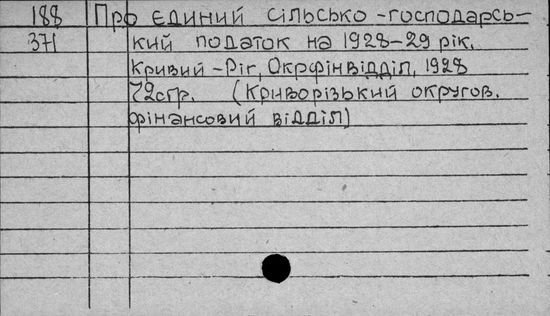 188 Про єдиний сільсько-господарсь-
371 кий податок на 1928-29 рік.
Кривий-Ріг, Окрфінвідділ, 1928
72стр. (Криворізький округов.
фінансовий відділ)